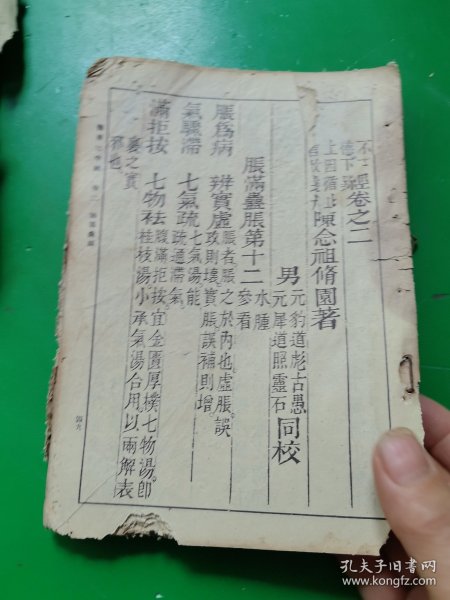 經卷之二
陳念祖脩園著
男元豹道彪古愚
元犀道照靈石同校
脹滿蠱脹第十二 水腫
參看
脹爲病 辨實虛 脹者脹之於內也虛脹誤
攻則壞實脹誤補則增
氣驟滯 七氣疏 七氣湯能
疏通滯氣
滿拒按 七物袪 腹滿拒按宜金匱厚樸七物湯。即
桂枝湯小承氣湯合用以兩解表
裏之實
邪也
孔夫子旧书网
www.kongfz.com